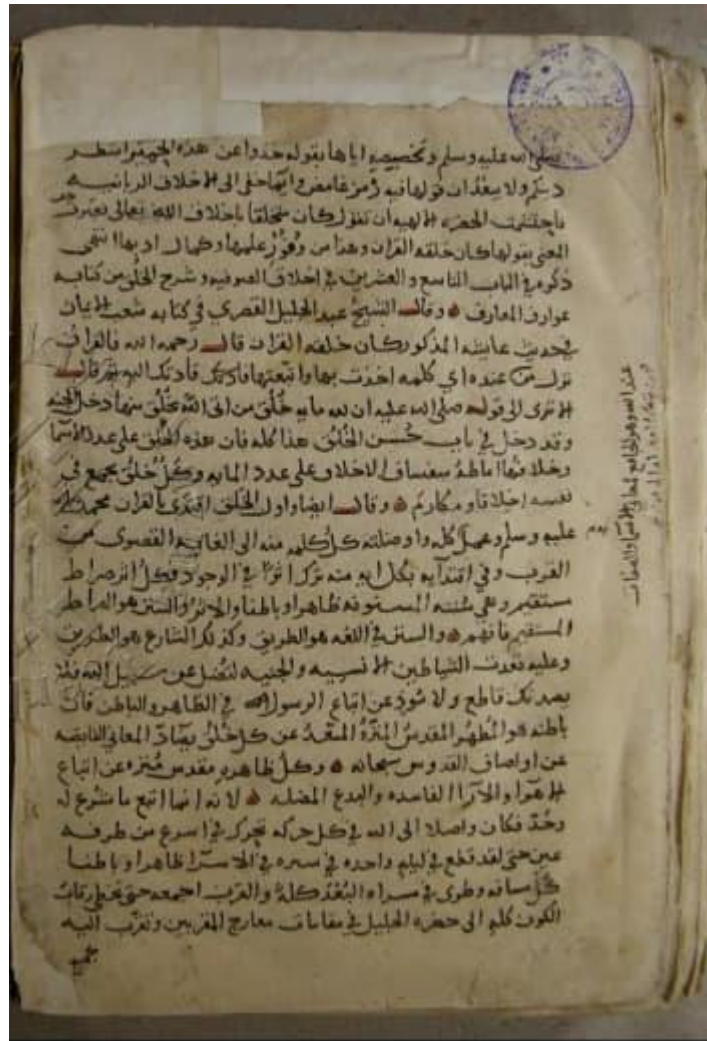 صلى الله عليه وسلم وتخصيصه اياها بقوله خذوا عن هذه
دينكم ولا يبعد ان قولها فيه رمز غامض وايما خفي الى الاخلاق الربانيه
فاحتشمت الحضره الالهيه ان تقول كان متخلقا باخلاق الله تعالى فعبرت عن
المعنى بقولها كان خلقه القران وهذا من وفور علمها وكمال ادبها انتهى
ذكره في الباب التاسع والعشرين في اخلاق الصوفيه وشرح الخلق من كتابه
عوارف المعارف وقال الشيخ عبد الجليل القصري في كتابه شعب الايمان
في حديث عايشه المذكور كان خلقه القران قال رحمه الله فالقران
نزل من عنده اي كلمه اخذت بها واتبعتها قادتك اليه ثم قال
الا ترى الى قوله صلى الله عليه ان لله مايه خلق من اتى الله بخلق منها دخل الجنه
وقد دخل في باب حسن الخلق هذا كله فان هذه الخلق على عدد الاسما
وخلافها اماطة سفساف الاخلاق على عدد المايه وكل خلق يجمع في
نفسه اخلاقا ومكارم وقال ايضا واول الخلق اقتدى بالقران محمد صلى الله
عليه وسلم وعمل كله واوصلته كل كلمه منه الى الغايه القصوى من
القرب وفي اقتدايه بكل ايه منه ترك اثرا في الوجود فكل اثر صراط
مستقيم وهي سننه المسنونه ظاهرا وباطنا والاثر والسنن هو الصراط
المستقيم فافهم والسنن في اللغه هو الطريق وكذلك الشارع هو الطريق
وعليه قعدت الشياطين الانسيه والجنيه لتضل عن سبيل الله فلا
يصدنك قاطع ولا مود عن اتباع الرسول في الظاهر والباطن فان
باطنه هو المطهر المقدس المنزه المبعد عن كل خلق يضاد المعاني الفايضه
عن اوصاف القدوس سبحانه وكل ظاهره مقدس منزه عن اتباع
الاهوا والارا الفاسده والبدع المضله لانه انما اتبع ما شرع له
وحد فكان واصلا الى الله في كل حركه تحرك في اسرع من طرفه
عين حتى لقد قطع في ليله واحده في سيره في الاسرا ظاهرا وباطنا
كل مسافه وطوى في مسراه البعد كله والقرب اجمعه حتى تخطى رقاب
الكون كله الى حضره الجليل في مقامات معارج المقربين وتقرب اليه
عند الله وهو الجامع لمعاني الاسماء والصفات